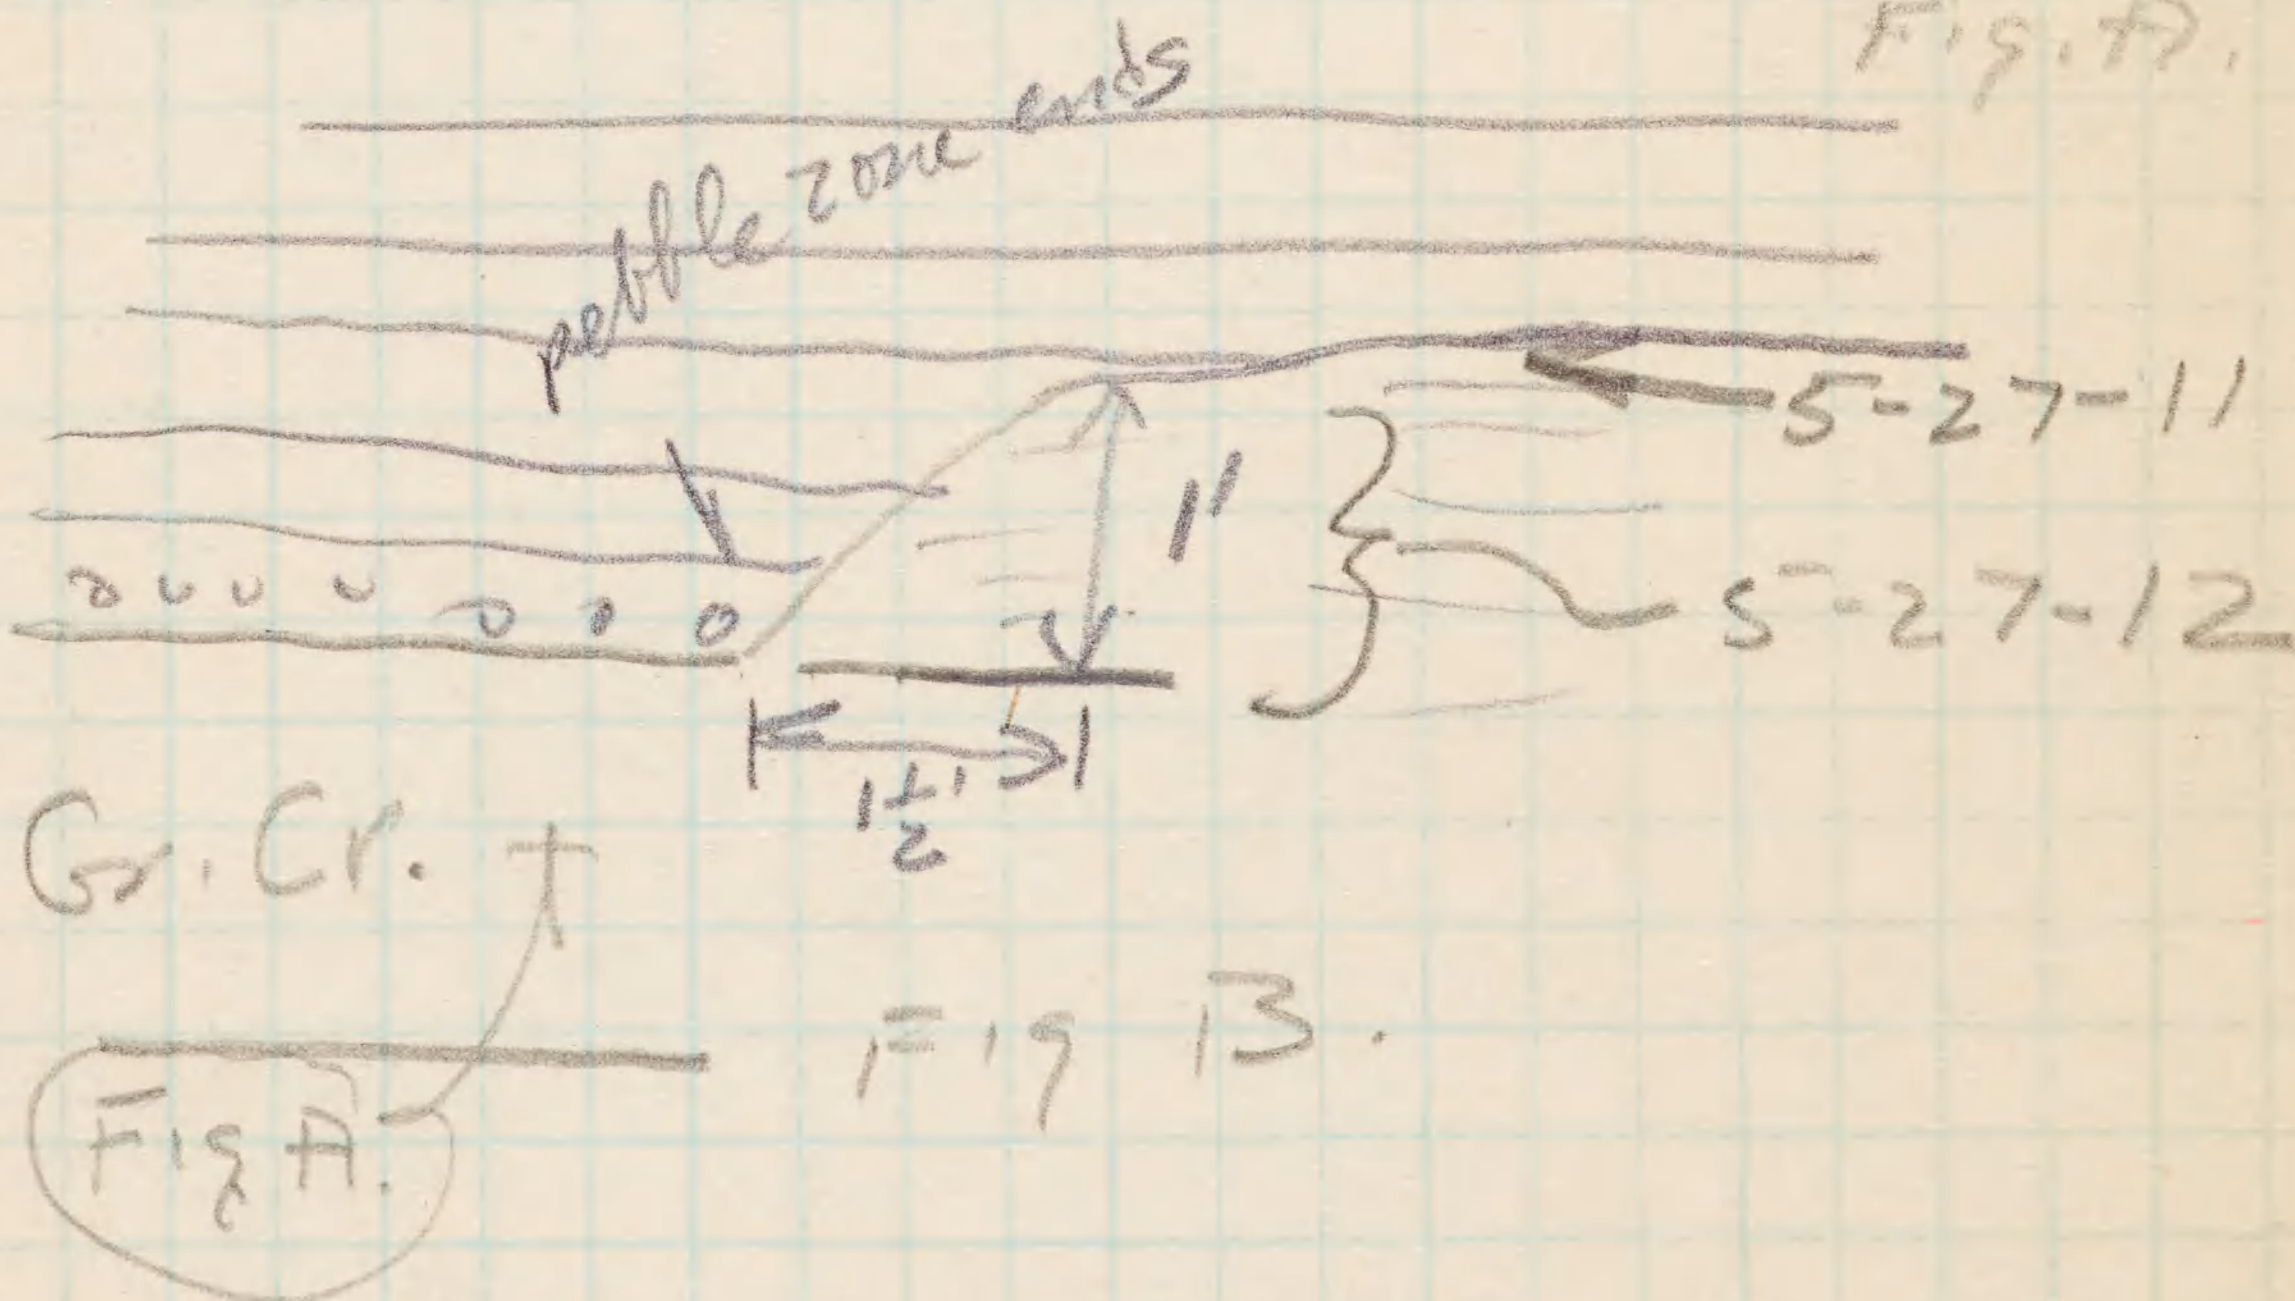 Fig. A.
pebble zone ends
5-27-11
1'
5-27-12
1 1/2'
Gr. Cr.
Fig B.
Fig A.